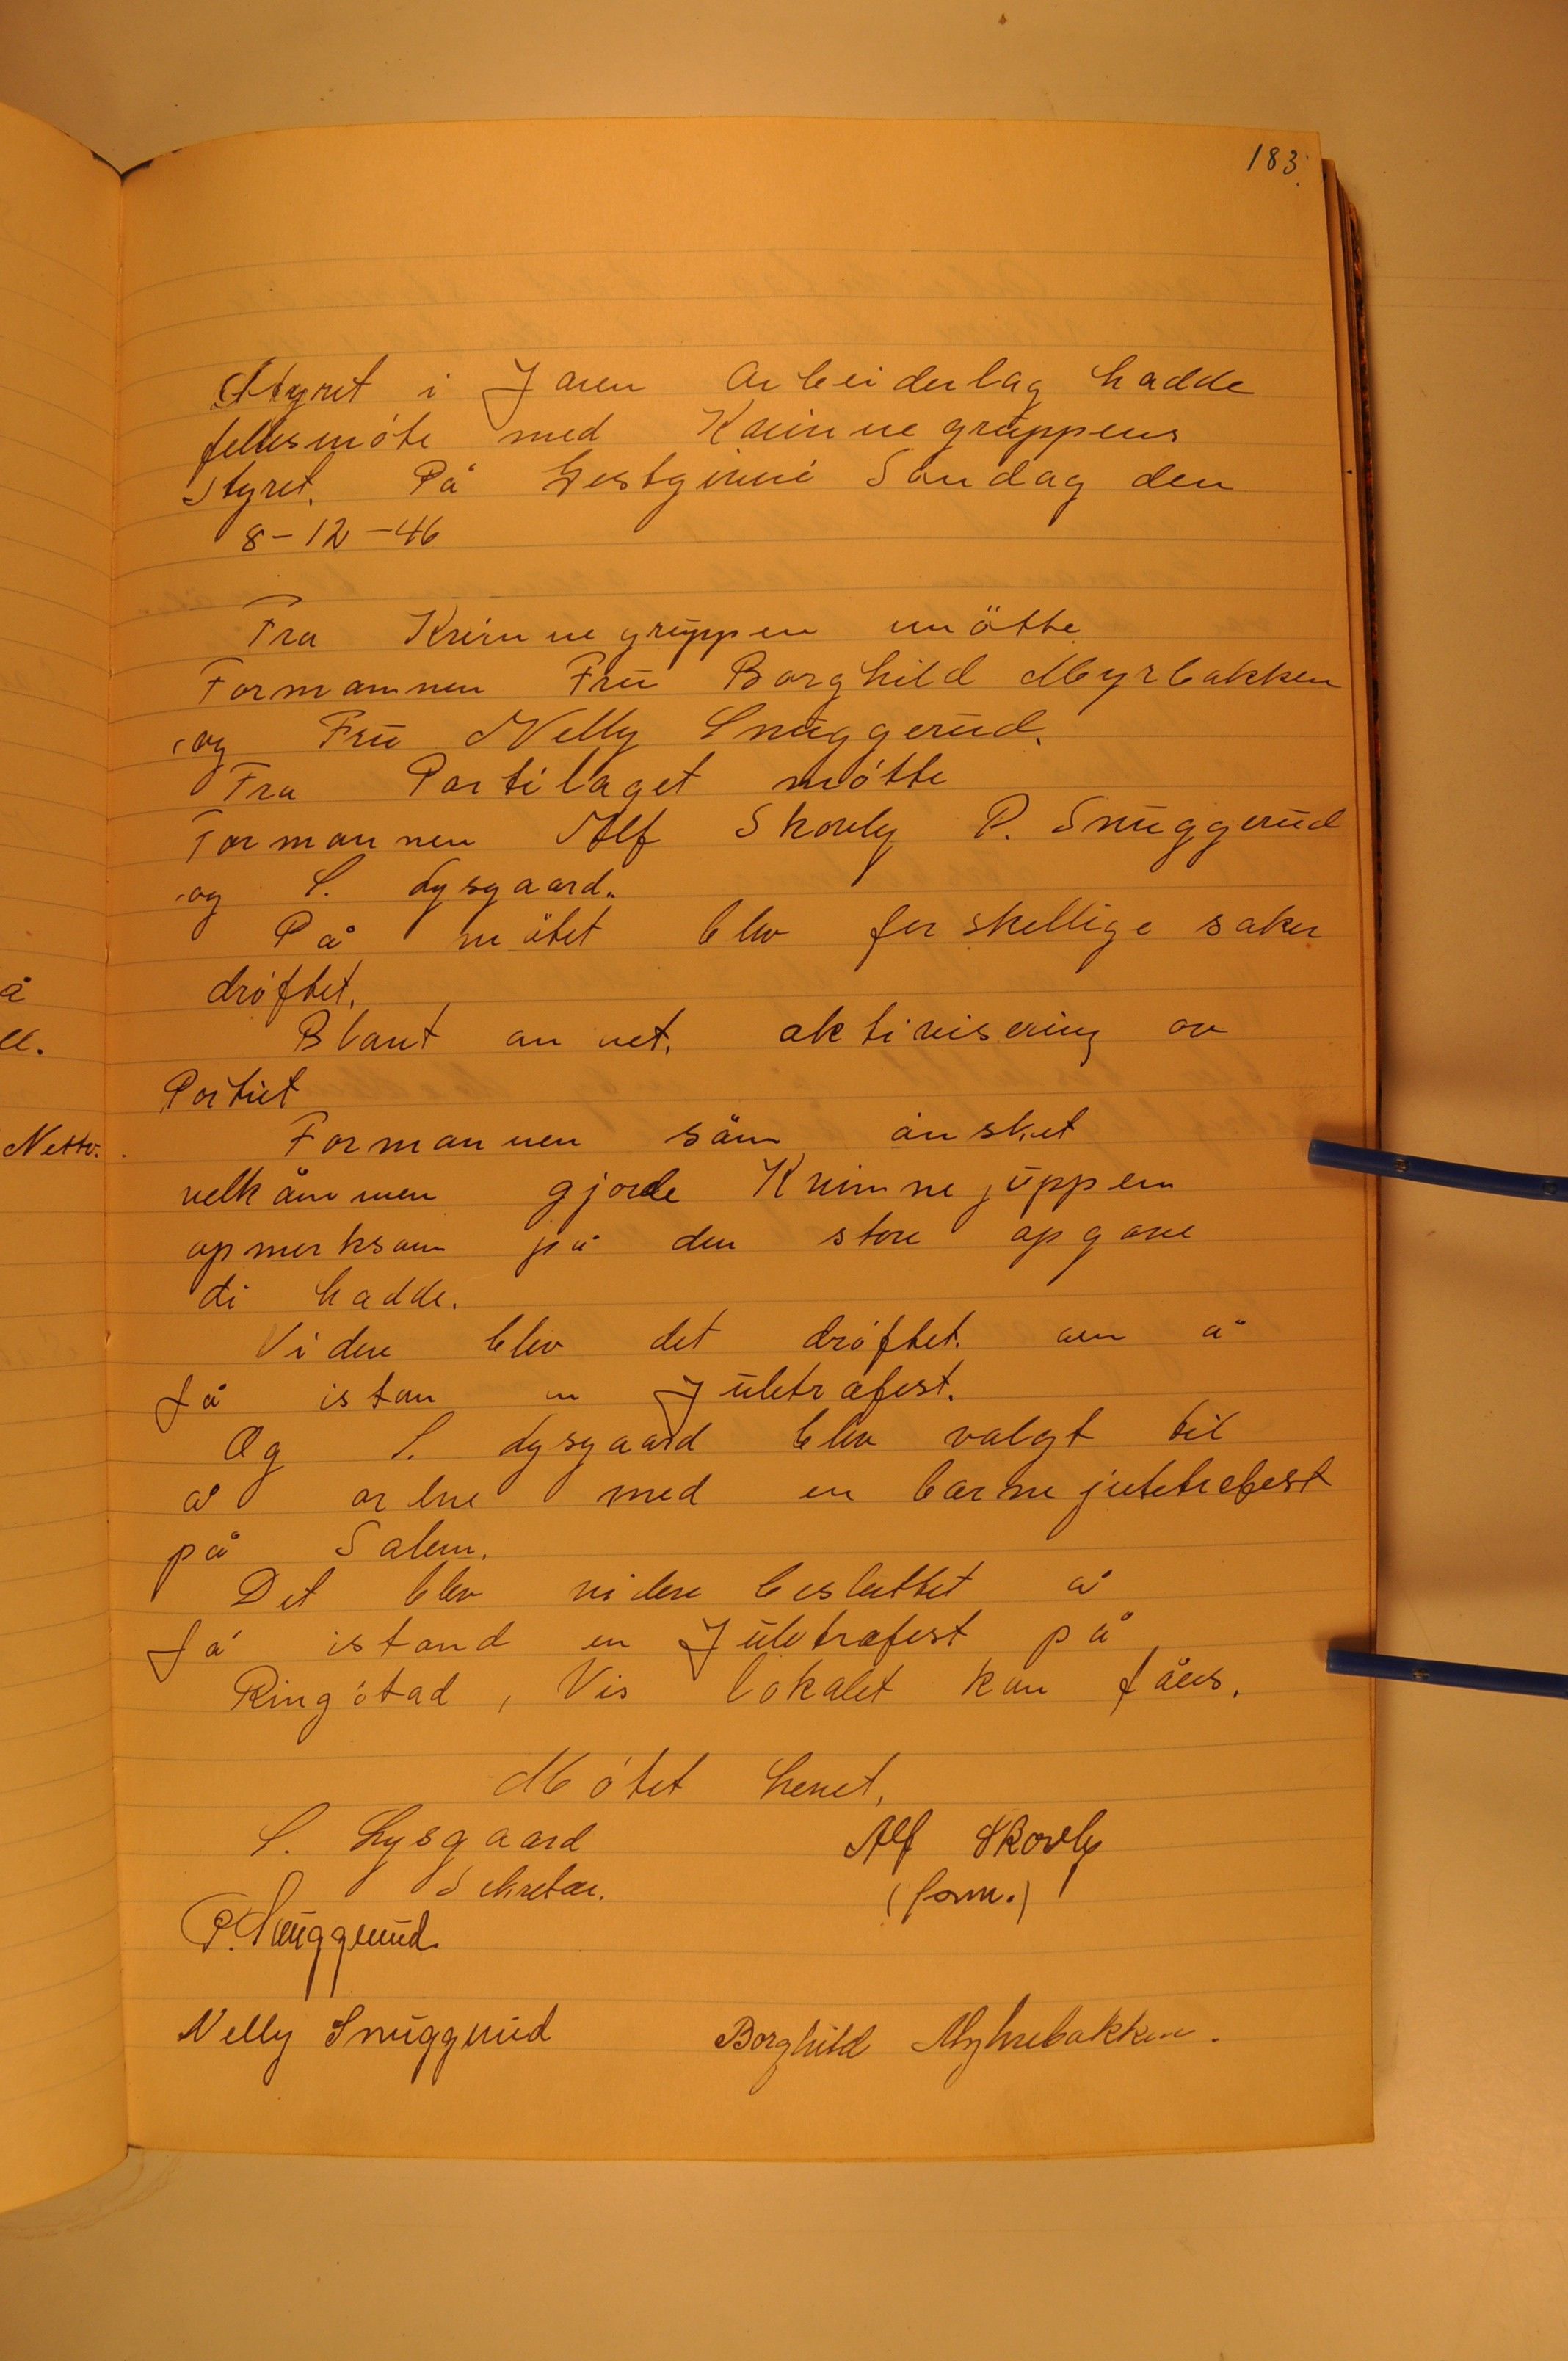 183.
Styret i Jaren Arbeiderlag hadde
fellesmöte med Kvinnegruppens
Styret. På Gestgiveri Söndag den
8-12-46
Fra Kvinnegruppen mötte
Formannen Frü Borghild Myrbakken
og Frü Nelly Snüggerüd.
Fra Partilaget mötte
Formannen Alf Skovly P. Snüggerüd
og S. Lysgaard.
På mötet blev forskellige saker
dröftet.
å
Blant annet. aktivisering av
ll.
Partiet
Formannen såm önsket
Netto.
velkåmmen gjorde Kvinnejüppen
opmerksom på den store opgave
di hadde.
Videre blev det dröftet. om å
få istan en Jületræfest.
Og S. Lysgaard blev valgt til
å arbne med en barnejuletrefest
på Salem.
Det blev videre besluttet å
få istand en Jületræfest på
Ringstad, Vis lokalet kan fåes.
Mötet hevet,
S. Lysgaard Alf Skovly
Sekretær. (form.)
P. Snüggerüd.
Nelly Snüggerüd Borghild Myhrebakken.